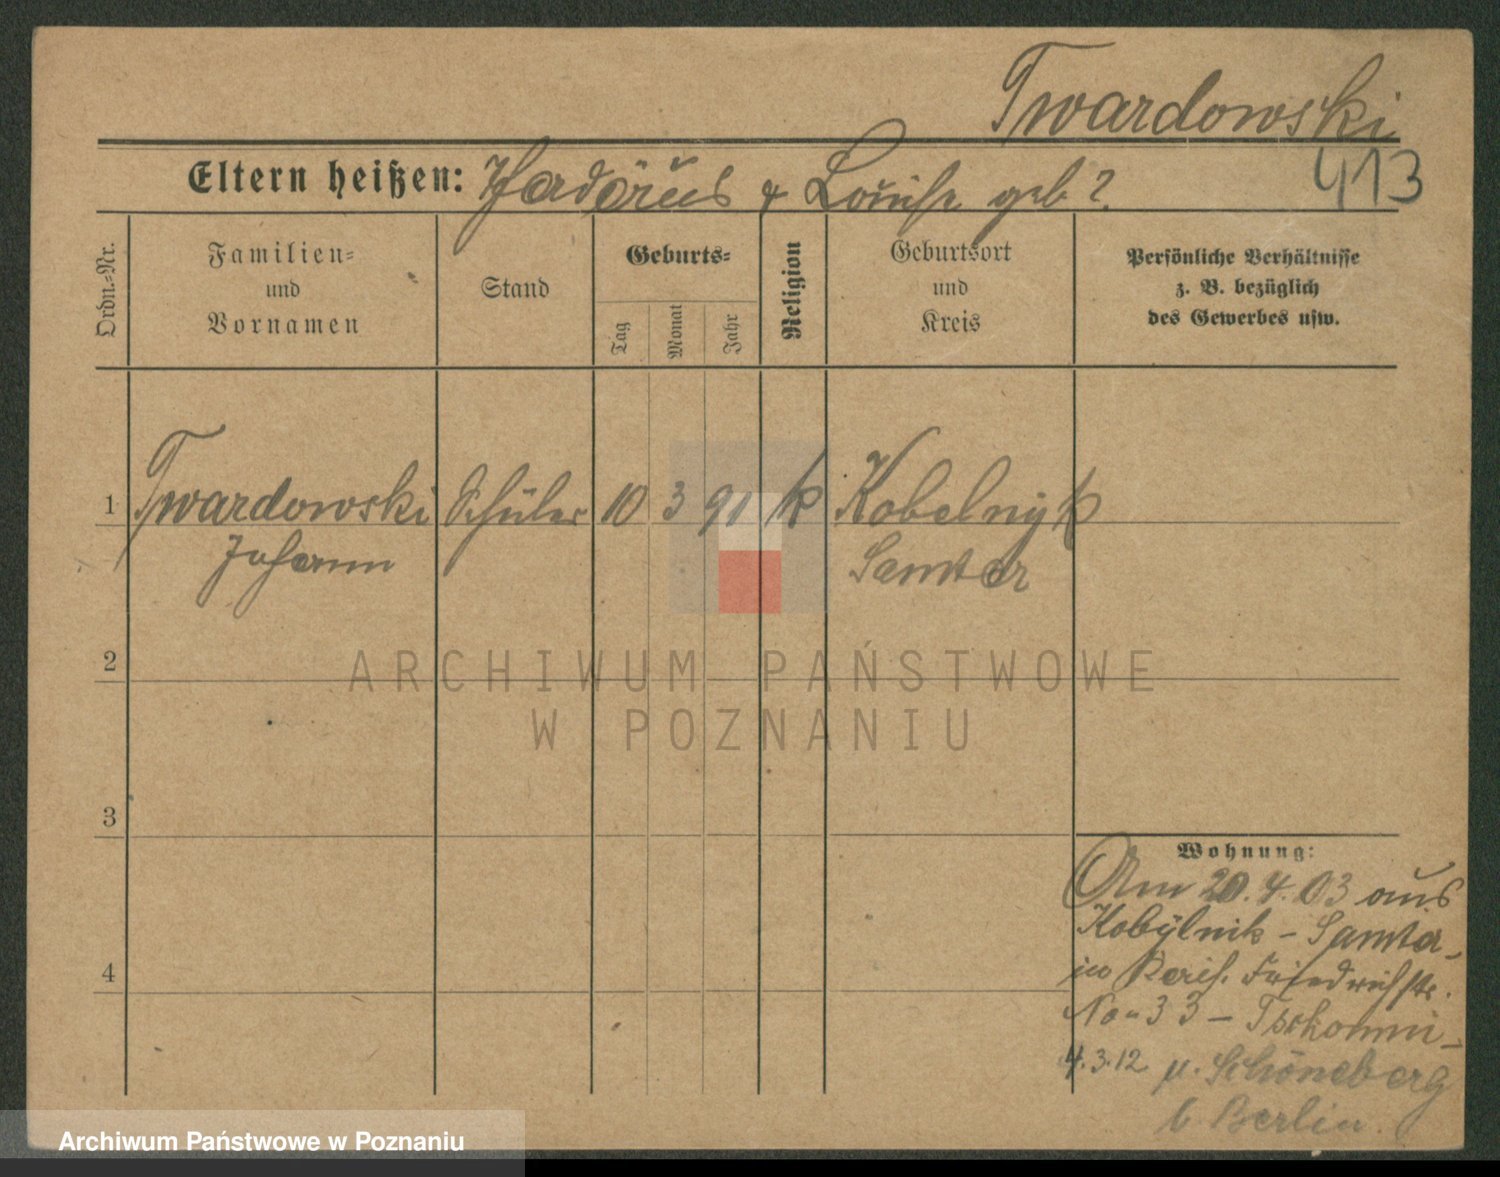 Twardowski
413
Eltern heißen: & Louise geb?
Ordn.-Nr.
Familien-
und
Vornamen
Stand
Geburts-
Tag
Monat
Jahr
Religion
Geburtsort
und
Kreis
Persönliche Verhältnisse
z. B. bezüglich
des Gewerbes usw.
1 Twardowski Schüler 10 3 91 k Kobelnik
Johann Samter
2
3
4
Wohnung:
Am 20.4.03 aus
Kobylnik - Samter -
in Friedrichstr.
No 33 -
4.3.12 n. Schöneberg
b. Berlin.
ARCHIWUM PAŃSTWOWE
W POZNANIU
Archiwum Państwowe w Poznaniu